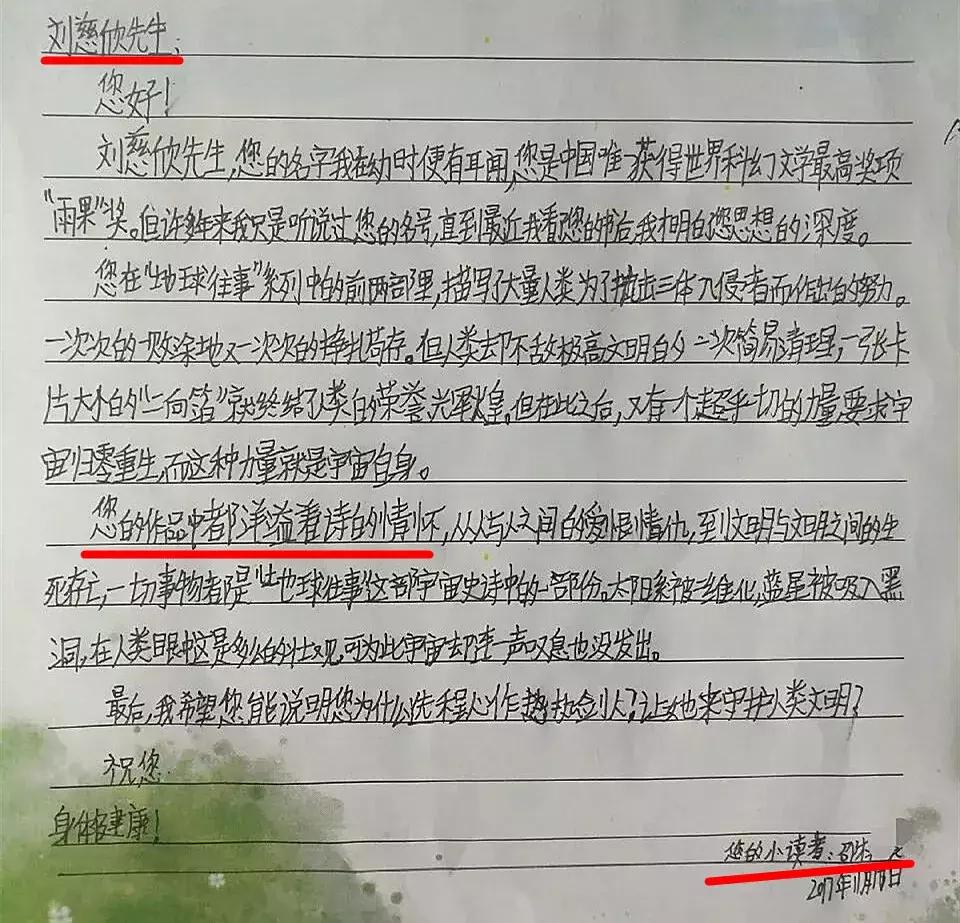 刘慈欣先生:
您好!
刘慈欣先生,您的名字我在幼时便有耳闻,您是中国唯一获得世界科幻文学最高奖项
"雨果"奖。但许多年来我只是听说过您的名号,直到最近我看您的书后,我才明白您思想的深度。
您在"地球往事"系列中的前两部里,描写了大量人类为了抗击三体入侵者而作出的努力。
一次次的一败涂地又一次次的挣扎苟存。但人类却不敌极高文明的一次简易清理,一张卡
片大小的"二向箔"就终结了人类的荣誉光辉煌。但在此之后,又有一个超乎一切的力量,要求宇
宙归零重生,而这种力量就是宇宙自身。
您的作品中都洋溢着诗的情怀,从人与人之间的爱恨情仇,至文明与文明之间的生
死存亡,一切事物都是"地球往事"这部宇宙史诗中的一部份。太阳系被二维化,蓝星被吸入黑
洞,在人类眼中这是多么的壮观,可为此宇宙却连一声叹息也没发出。
最后,我希望您能说明您为什么选程心作为执剑人?让她来守护人类文明?
祝您
身体健康!
您的小读者:邵
2017年11月18日